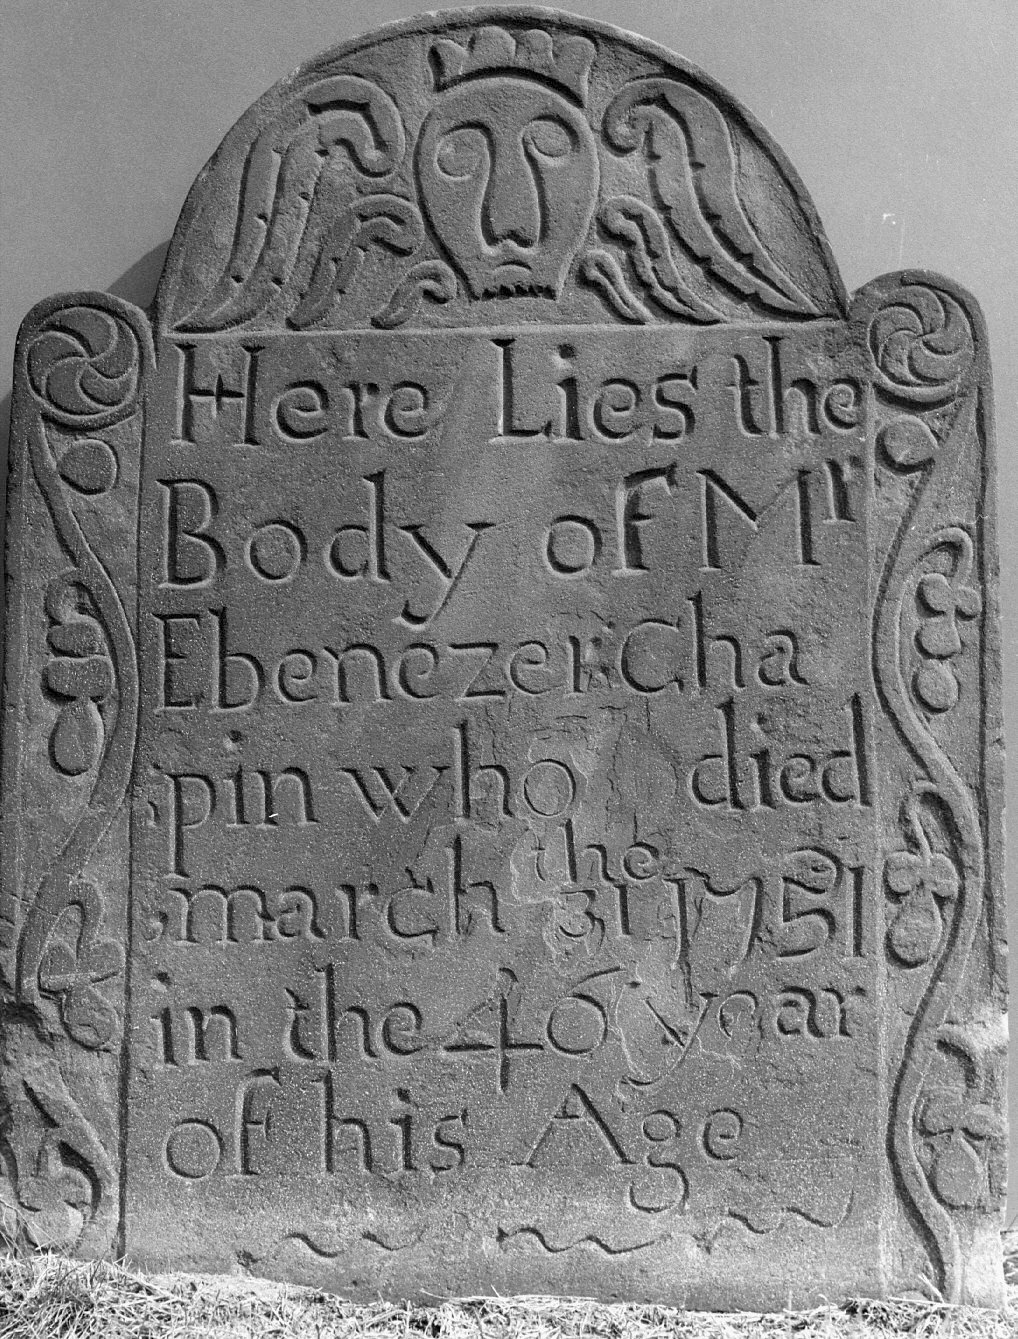 Here Lies the
Body of Mr
Ebenezer Cha
pin who died
march the 13 1751
in the 46 year
of his Age